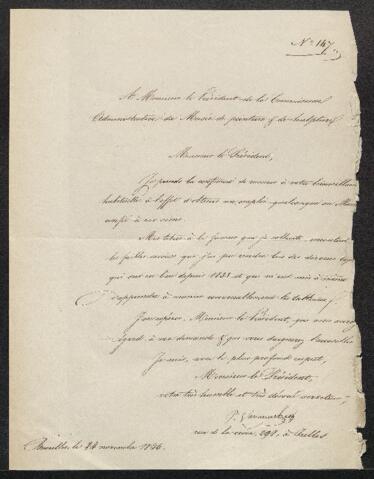 N° 147
A Monsieur le Président de la Commission
Administrative du Musée de peinture & de Sculpture
Monsieur le Président,
Je prends la confiance de recourir à votre bienveillance
habituelle à l'effet d'obtenir un emploi quelconque au Musée
Mes titres à la faveur que je sollicite, seraient
les faibles services que j'ai pu rendre lors des diverses
qui ont eu lieu depuis 1831 et qui m'ont mis à même
d'apprendre à manier convenablement les tableaux.
J'ose espérer, Monsieur le Président, que vous aurez
égard à ma demande & que vous daignerez l'accueillir
Je suis, avec le plus profond respect,
Monsieur le Président,
votre très humble et très dévoué serviteur,
rue de la 298, à Ixelles
Bruxelles, le 24 novembre 1856.